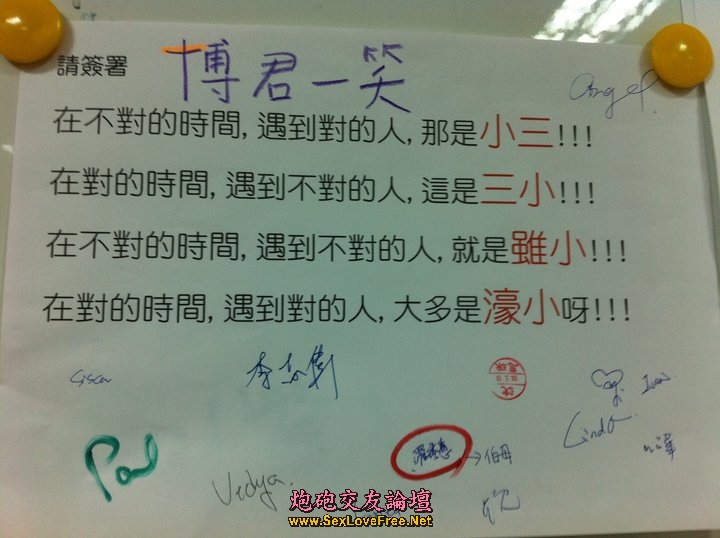 請簽署
博君一笑
Angel
在不對的時間,遇到對的人,那是小三!!!
在對的時間,遇到不對的人,這是三小!!!
在不對的時間,遇到不對的人,就是雖小!!!
在對的時間,遇到對的人,大多是濠小呀!!!
Paul
Vedya
Linda
→伯母
炮砲交友論壇
www.SexLoveFree.Net